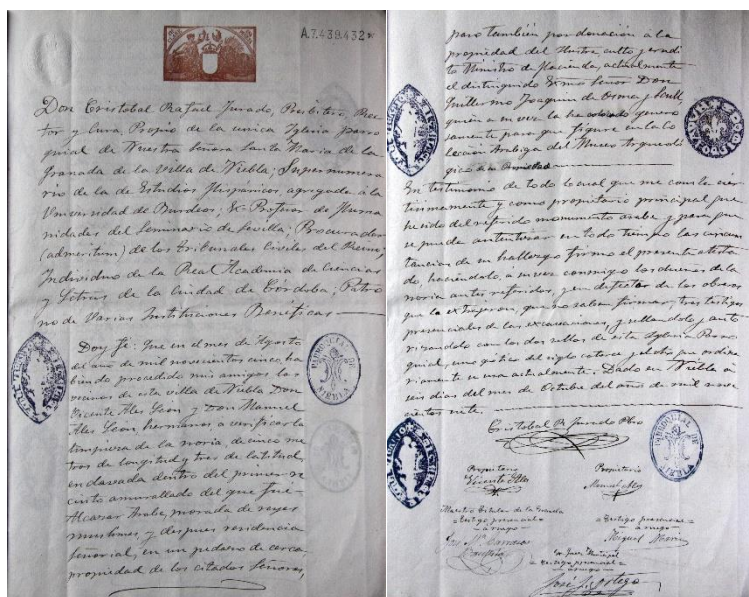 A.7.439.432
Don Cristobal Rafael Jurado, Presbítero, Rec-
tor y Cura, Propio de la unica Iglesia parro
quial de Nuestra Señora Santa Maria de la
Granada de la villa de Niebla; Supernumera
rio de la de Estudios Hispanicos agregada a la
Universidad de Burdeos; Ex-Profesor de Huma
nidades del Seminario de Sevilla; Procurador
de los Tribunales Civiles del Reino;
Individuo de la Real Academia de Ciencias
y Letras de la Ciudad de Córdoba; Patro
no de Varias Instituciones Beneficas
Doy fe: Que en el mes de Agosto
del año de mil novecientos cinco, ha
biendo procedido mis amigos los
vecinos de esta villa de Niebla Don
Vicente Ales Leon y Don Manuel
Ales Leon, hermanos, a verificar la
limpieza de la noria, de cinco me
tros de longitud y tres de latitud,
enclavada dentro del primer re
cinto amurallado del que fué
Alcazar Arabe, morada de reyes
musulmanes, y despues residencia
señorial, en un pedazo de cerca
propiedad de los citados Señores,
PARROQUIAL DE
NIEBLA
paro también por donación a la
propiedad del Ilustre, culto y erudi
to Ministro de Hacienda, actualmente
el distinguido Excmo Señor Don
Guillermo Joaquin de Osma y Scull,
quién a su vez la ha genero
samente para que figure en la Co
lección Arabiga del Museo Arqueoló
gico
En testimonio de todo lo cual que me consta cier
tisimamente y como propietario principal que
he sido del referido monumento arabe y para que
se pueda autentizar en todo tiempo las circuns
tancias de su hallazgo firmo el presente atesta
do, haciendolo, a su vez conmigo los dueños de la
noria antes referidos, y en defecto de los obreros
que la extrajeron, que no saben firmar, tres testigos
presenciales de las excavaciones y sellandolo, auto
rizandolo con los dos sellos de esta Iglesia Parro
quial, uno gótico del siglo catorce y el otro que ordina
riamente se usa actualmente. Dado en Niebla a
seis dias del mes de Octubre del año de mil nove
cientos siete.
Cristobal R. Jurado Pbro
PARROQUIAL DE
NIEBLA
Propietario
Vicente Ales
Propietario
Manuel Ales
Maestro Titular de la Escuela
= Testigo presencial =
= a ruego =
= Testigo presencial =
= a ruego =
Miguel
Ex-Juez Municipal
= Testigo presencial =
= a ruego =
José L. Ortega